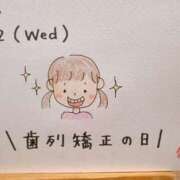 2 (Wed)
\ 歯列矯正の日 /